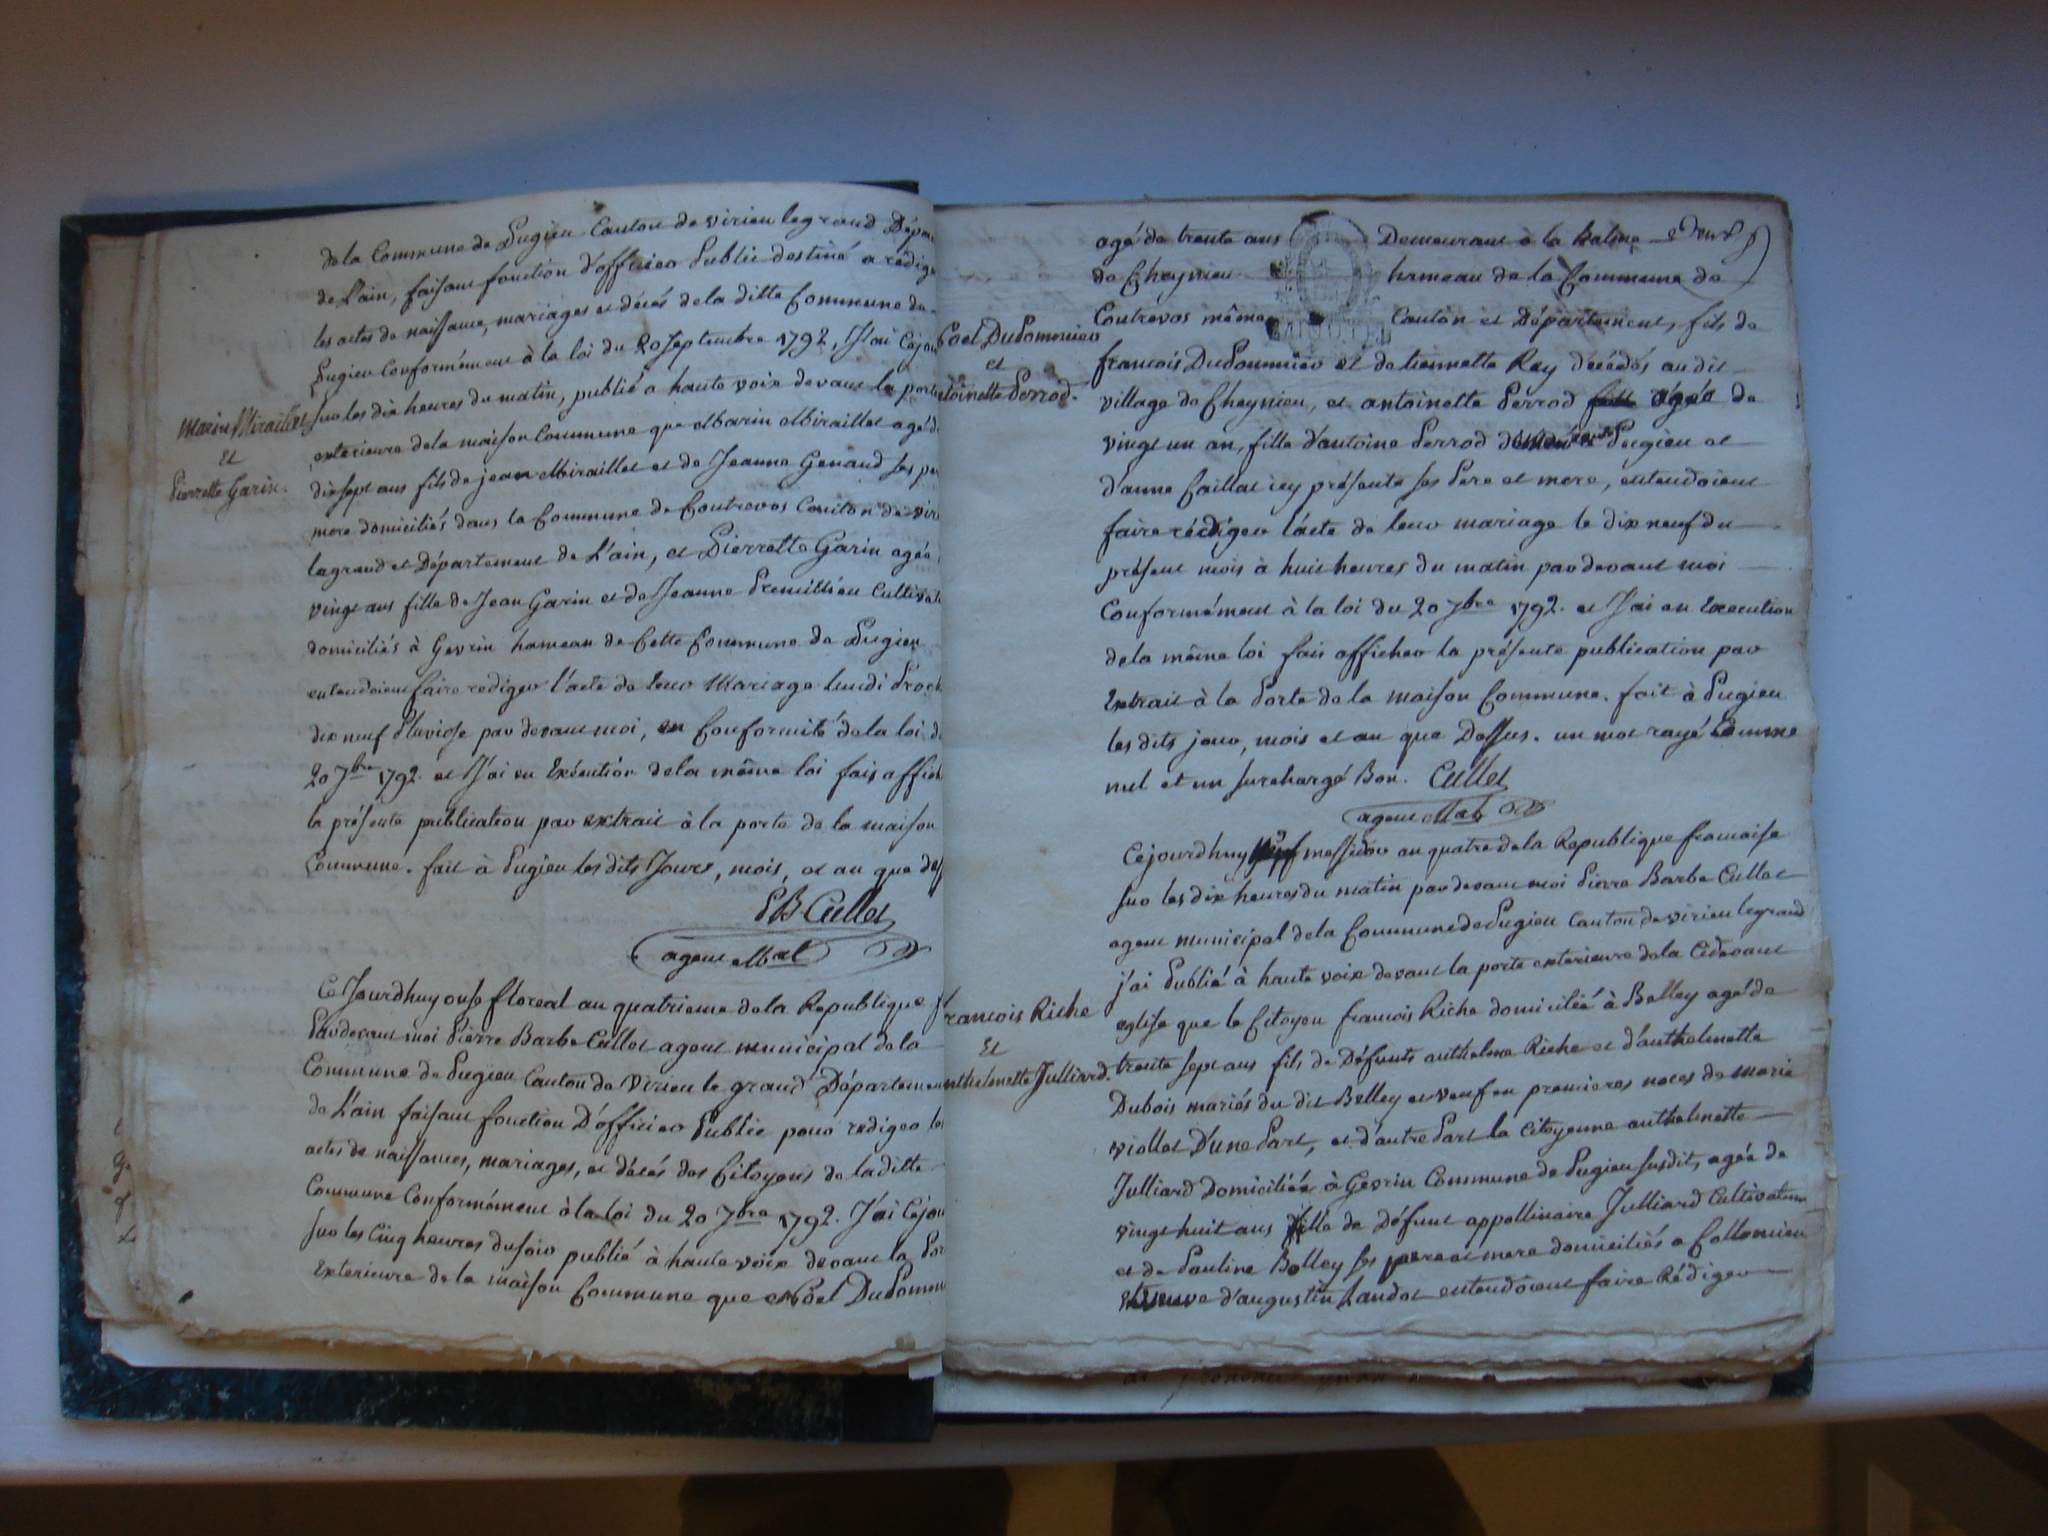 de la Commune de Pugieu Canton de virieu le grand Dépar
de L'ain, faisant fonction d'officier Public destiné a rédige
les actes de naissance, mariages et décés de la ditte Commune de
Pugieu Conformément à la loi du 20 Septembre 1792, J'ai Cejou
Marin Miraillet
et
Pierrette Garin.
sur les dix heures du matin, publié a haute voix devant la porte
exterieure de la maison Commune que Marin Miraillet agé d
dixsept ans fils de jean Miraillet et de Jeanne Genaud ses pe
mere domiciliés dans la Commune de Contrevos Canton de vir
legrand et Département de L'ain, et Pierrette Garin agée
vingt ans fille de Jean Garin et de Jeanne Premillieu Cultivat
domiciliés à Gevrin hameau de Cette Commune de Pugieu
entendoient faire rediger l'acte de leur Mariage lundi Proch
dix neuf Pluviose par devant moi, en Conformité de la loi d
20 7bre 1792. et J'ai en Exécution de la même loi fais affich
la présente publication par extrait à la porte de la maison
Commune. fait à Pugieu les dits Jours, mois, et an que des
PB Cullet
agent Mal
Ce Jourdhuy onse floreal an quatrieme de la Republique f
Pardevant moi Pierre Barbe Cullet agent municipal de la
Commune de Pugieu Canton de Virieu le grand Départemen
de L'ain faisant fonction D'officier Public pour rediger les
actes de naissances, mariages, et décés des Citoyens de la ditte
Commune Conformément à la loi du 20 7bre 1792. J'ai Cejou
sur les Cinq heures du soir publié à haute voix devant la Por
Exterieure de la maison Commune que Noël Dupommi
agé de trente ans Demeurant à la Balme
de Cheynieu hameau de la Commune de
Contrevos même Canton et Département, fils de
oel Dupommier
et
toinette Perrod.
francois Dupommier et de tiennette Rey décédés au dit
village de Cheynieu, et antoinette Perrod agée de
vingt un an, fille d'antoine Perrod Pugieu et
d'anne Caillat icy présents ses Pere et mere, entendoient
faire rédiger l'acte de leur mariage le dix neuf du
présent mois à huit heures du matin par devant moi
Conformément à la loi du 20 7bre 1792. et J'ai en Execution
de la même loi fais afficher la présente publication par
Extrait à la Porte de la maison Commune. fait à Pugieu
les dits jour, mois et an que Dessus. un mot rayé Comme
nul et un surchargé Bon. Cullet
agent Mal
Cejourdhuy messidor an quatre de la Republique francaise
sur les dix heures du matin par devant moi Pierre Barbe Cullet
agent municipal de la Commune de Pugieu Canton de virieu legrand
j'ai Publié à haute voix devant la porte exterieure de la Cidevant
francois Riche
et
nthelmette Julliard.
eglise que le Citoyen francois Riche domicilié à Belley agé de
trente sept ans fils de Défunts anthelme Riche et d'anthelmette
Dubois mariés du dit Belley et veuf en premieres noces de marie
viollet D'une Part, et d'autre Part la Citoyenne anthelmette
Julliard domiciliée à Gevrin Commune de Pugieu susdit, agée de
vingt huit ans fille de Défunt appollinaire Julliard Cultivateur
et de Pauline Bolley ses pere et mere domiciliés a Collomieu
veuve d'augustin Landot entendoient faire Rédiger